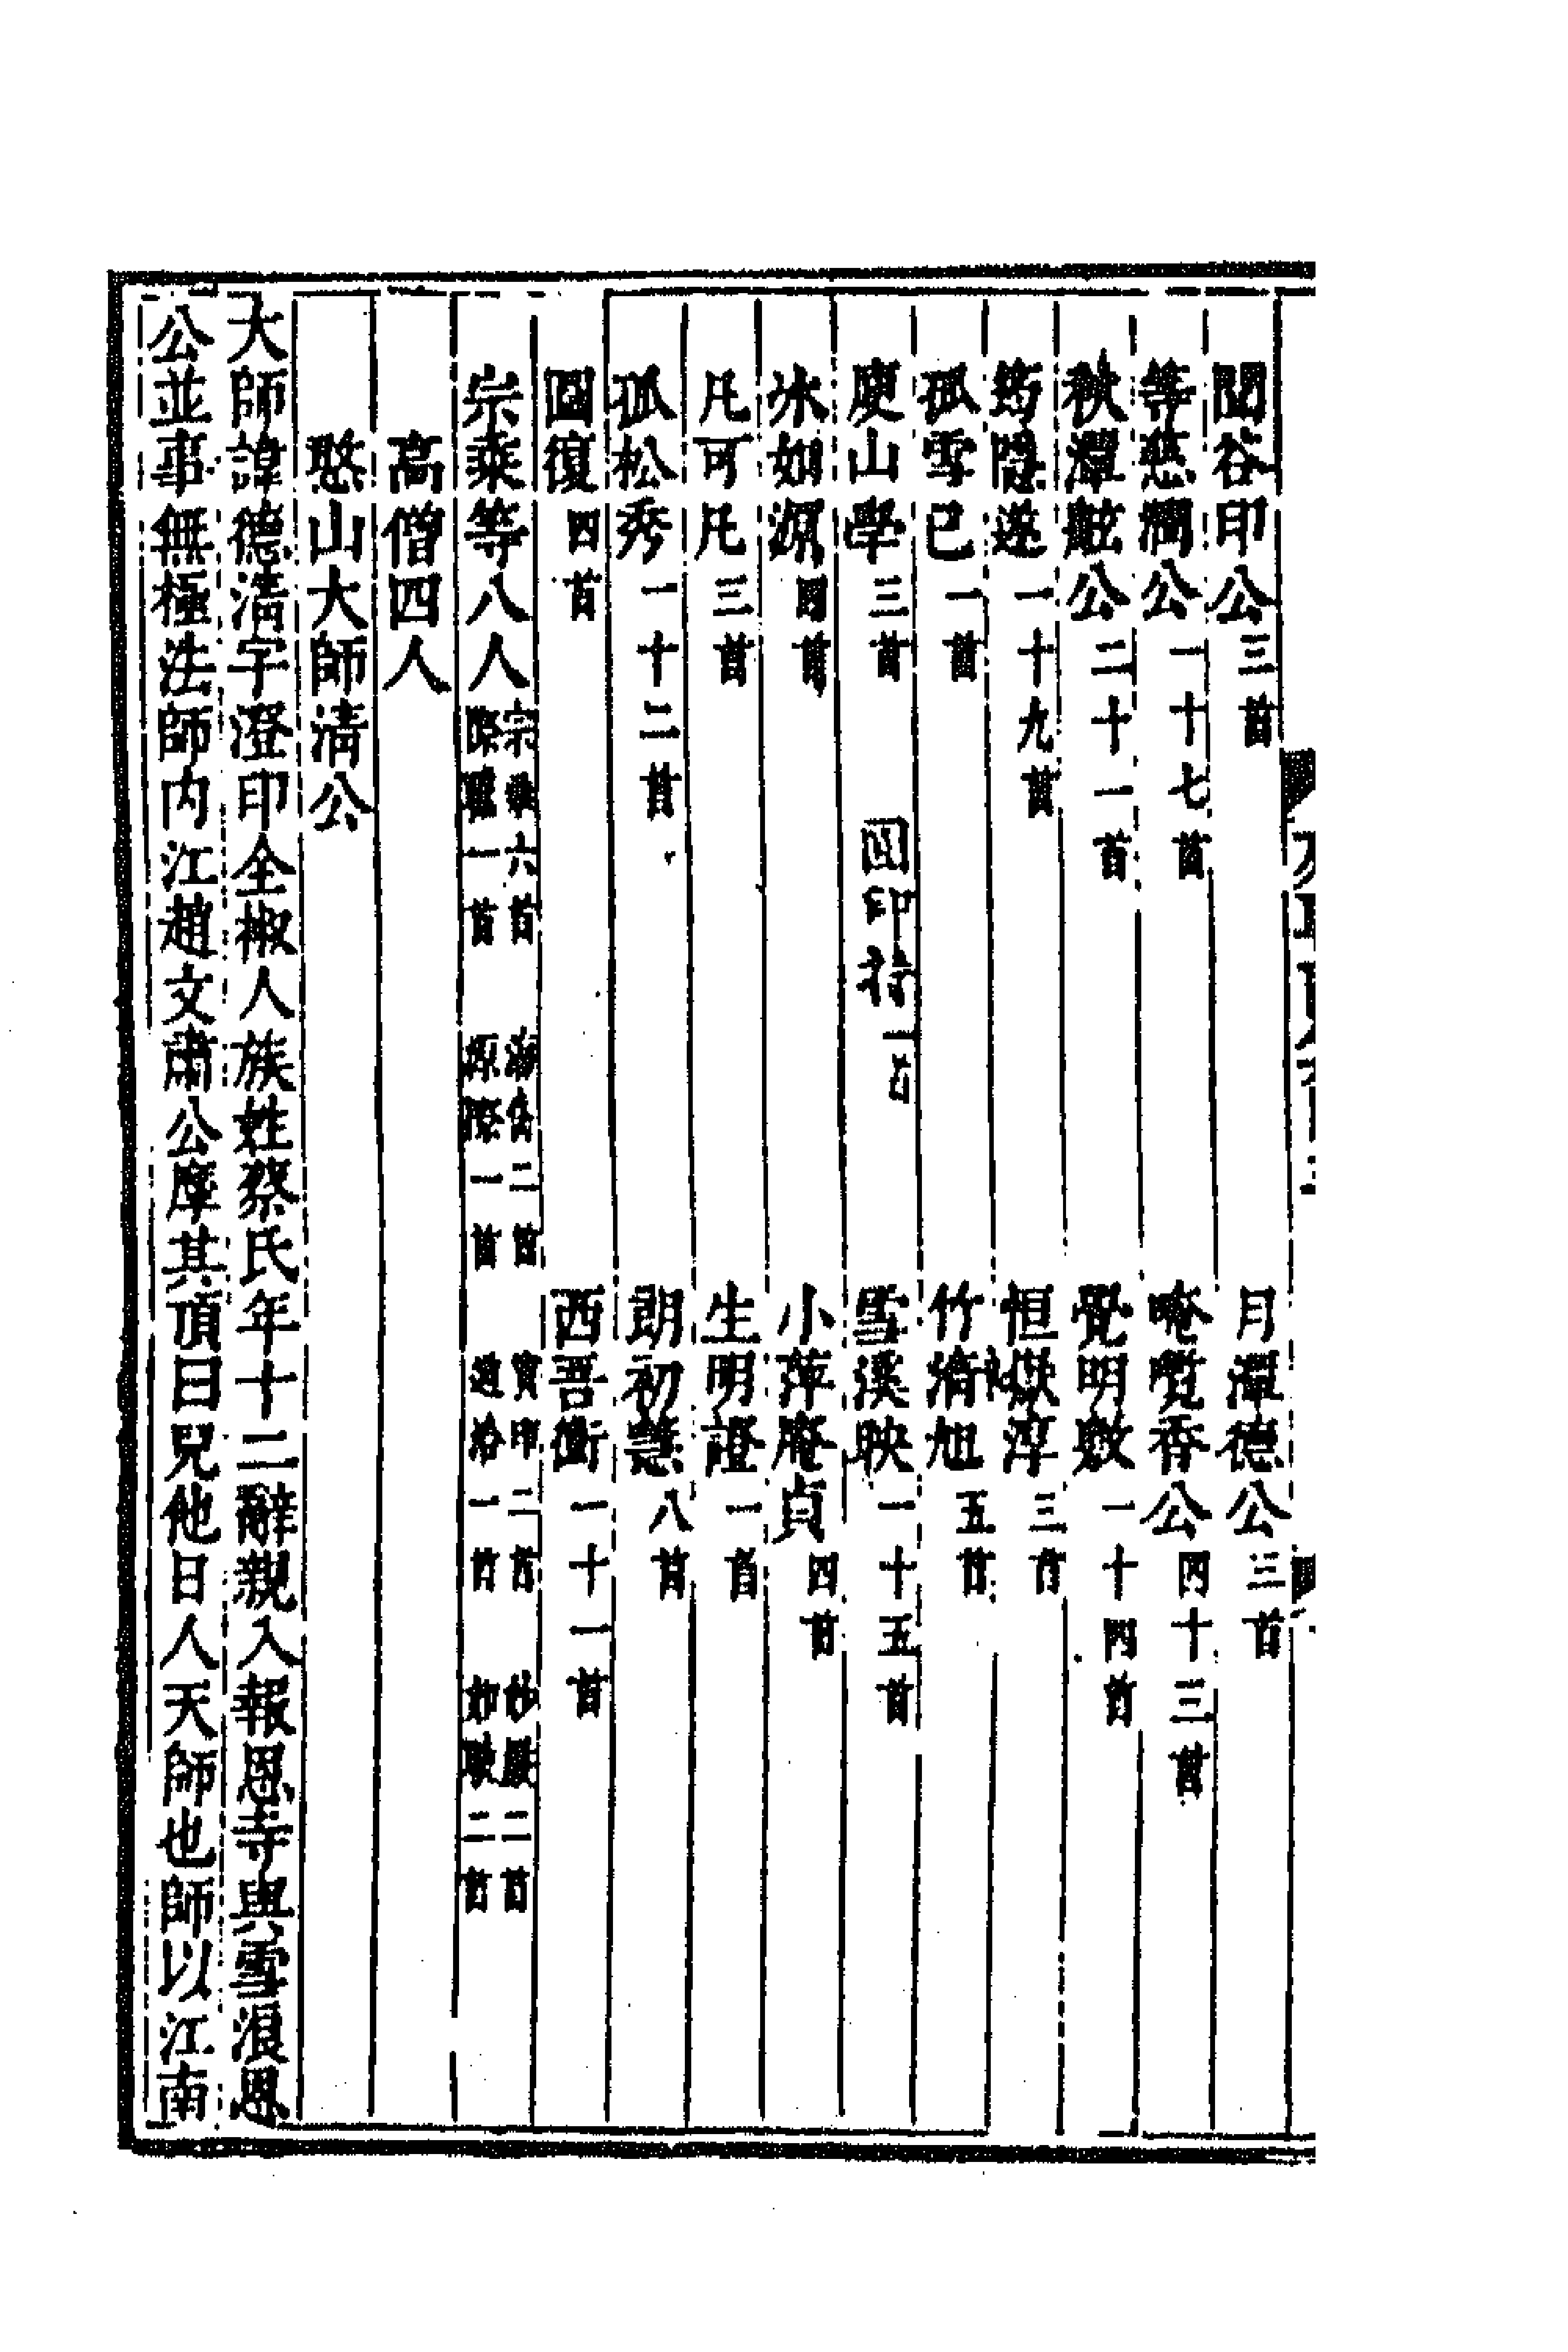 聞谷印公三首 月潭德公三首
等慈潤公一十七首 㫪覽香公四十三首
秋潭舷公二十一首 覺明斅一十四首
筠隱遂一十九首 恒淳三首
孤雪已一首 竹淸旭五首
庾山學三首 圓印持一首 雪溪映一十五首
氷如源四首 小萍庵貞四首
凡可凡三首 生明證一首
孤松秀一十二首 朗初慧八首
圓復四首 西吾衡一十一首
宗乘等八人宗乘六首 二首 寶印二首 妙嚴二首
一首 源際一首 道洽一首 妙二首
高僧四人
憨山大師淸公
大師諱德淸字澄印全椒人族姓蔡氏年十二辭親入報恩寺與雪浪恩
公並事無極法師内江趙文肅公摩其頂曰兒他日人天師也師以江南